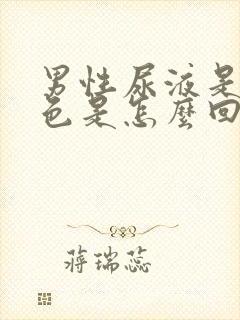 男性尿液是
色是怎麼回
蔣瑞蕊